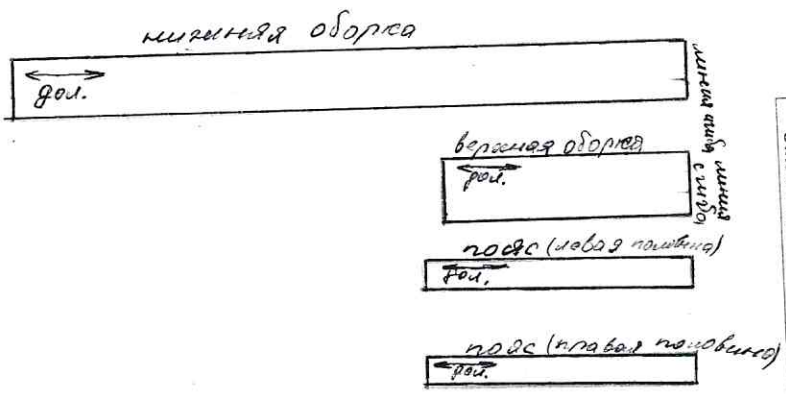 нижняя оборка
дол.
линия сгиба
верхная оборка
дол.
линия сгиба
пояс (левая половина)
дол.
пояс (правая половина)
дол.